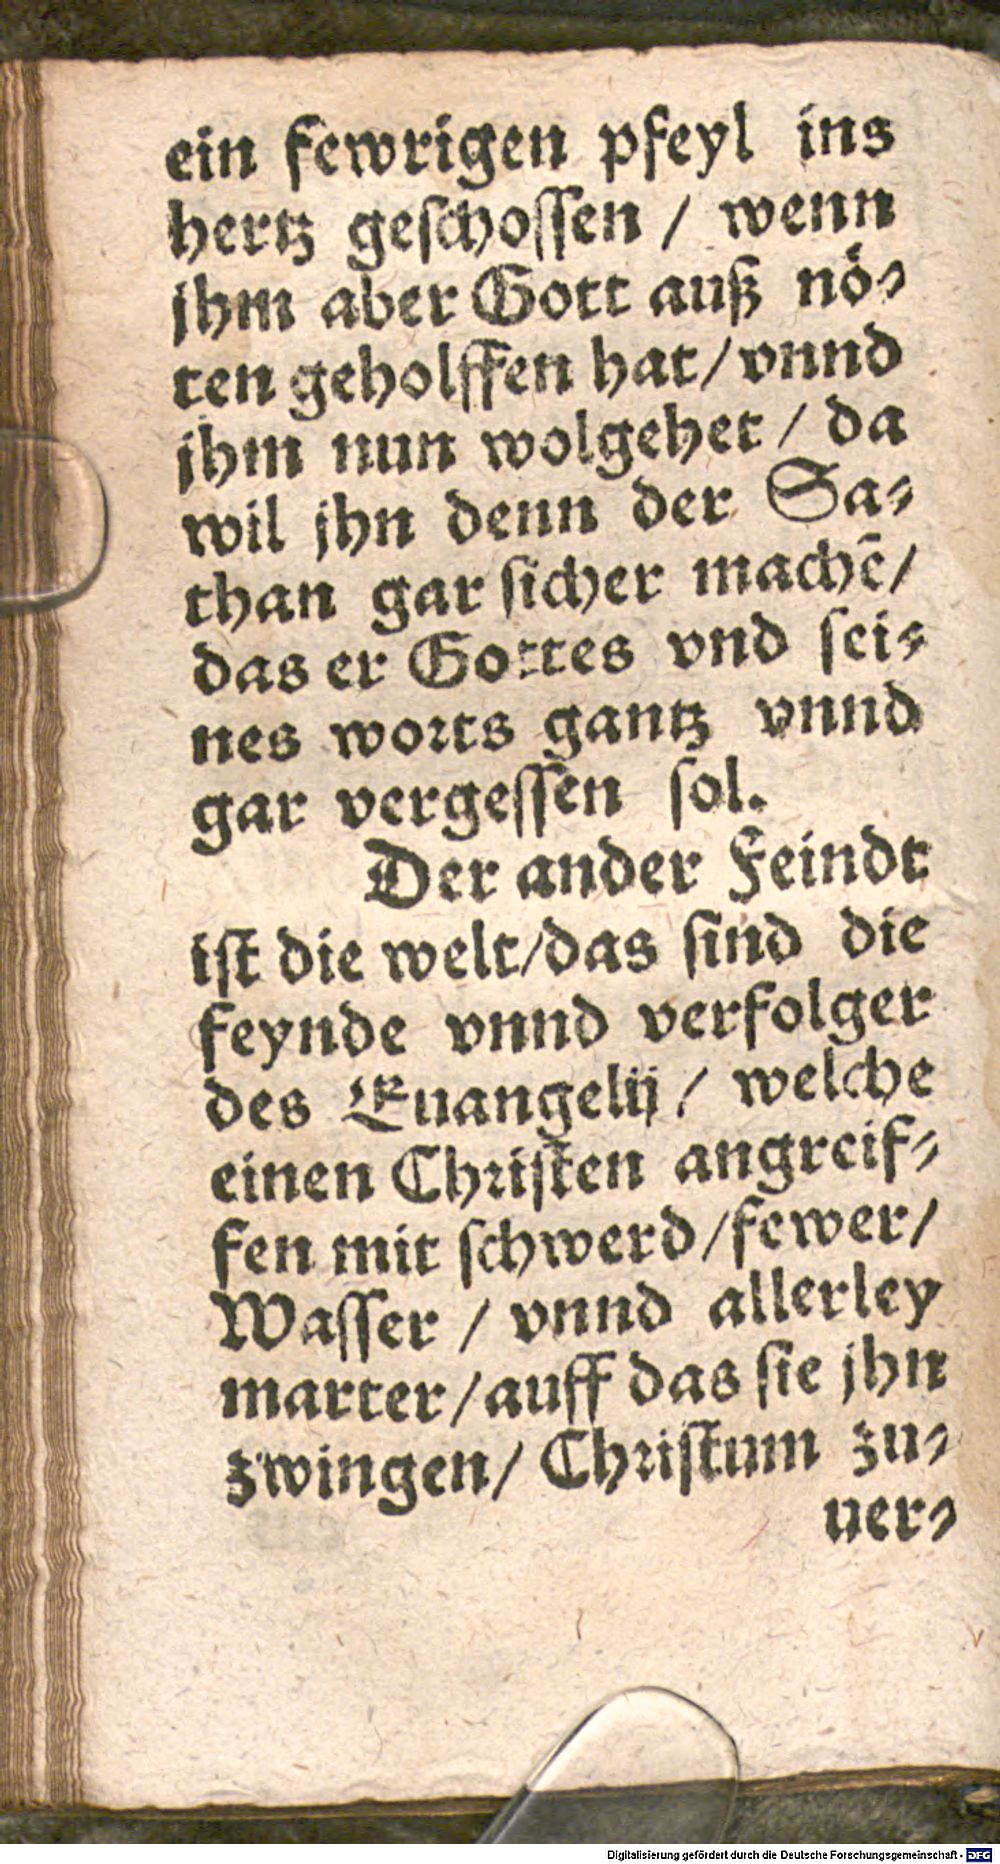 ein fewrigen pfeyl ins
hertz geschossen / wenn
jhm aber Gott auß nö-
ten geholffen hat / vnnd
jhm nun wolgehet / da
wil jhn denn der Sa-
than gar sicher machē /
das er Gottes vnd sei-
nes worts gantz vnnd
gar vergessen sol.
Der ander Feindt
ist die welt / das sind die
feynde vnnd verfolger
des Euangelij / welche
einen Christen angreif-
fen mit schwerd / fewer /
Wasser / vnnd allerley
marter / auff das sie jhn
zwingen / Christum zu-
uer-
Digitalisierung gefördert durch die Deutsche Forschungsgemeinschaft - DFG